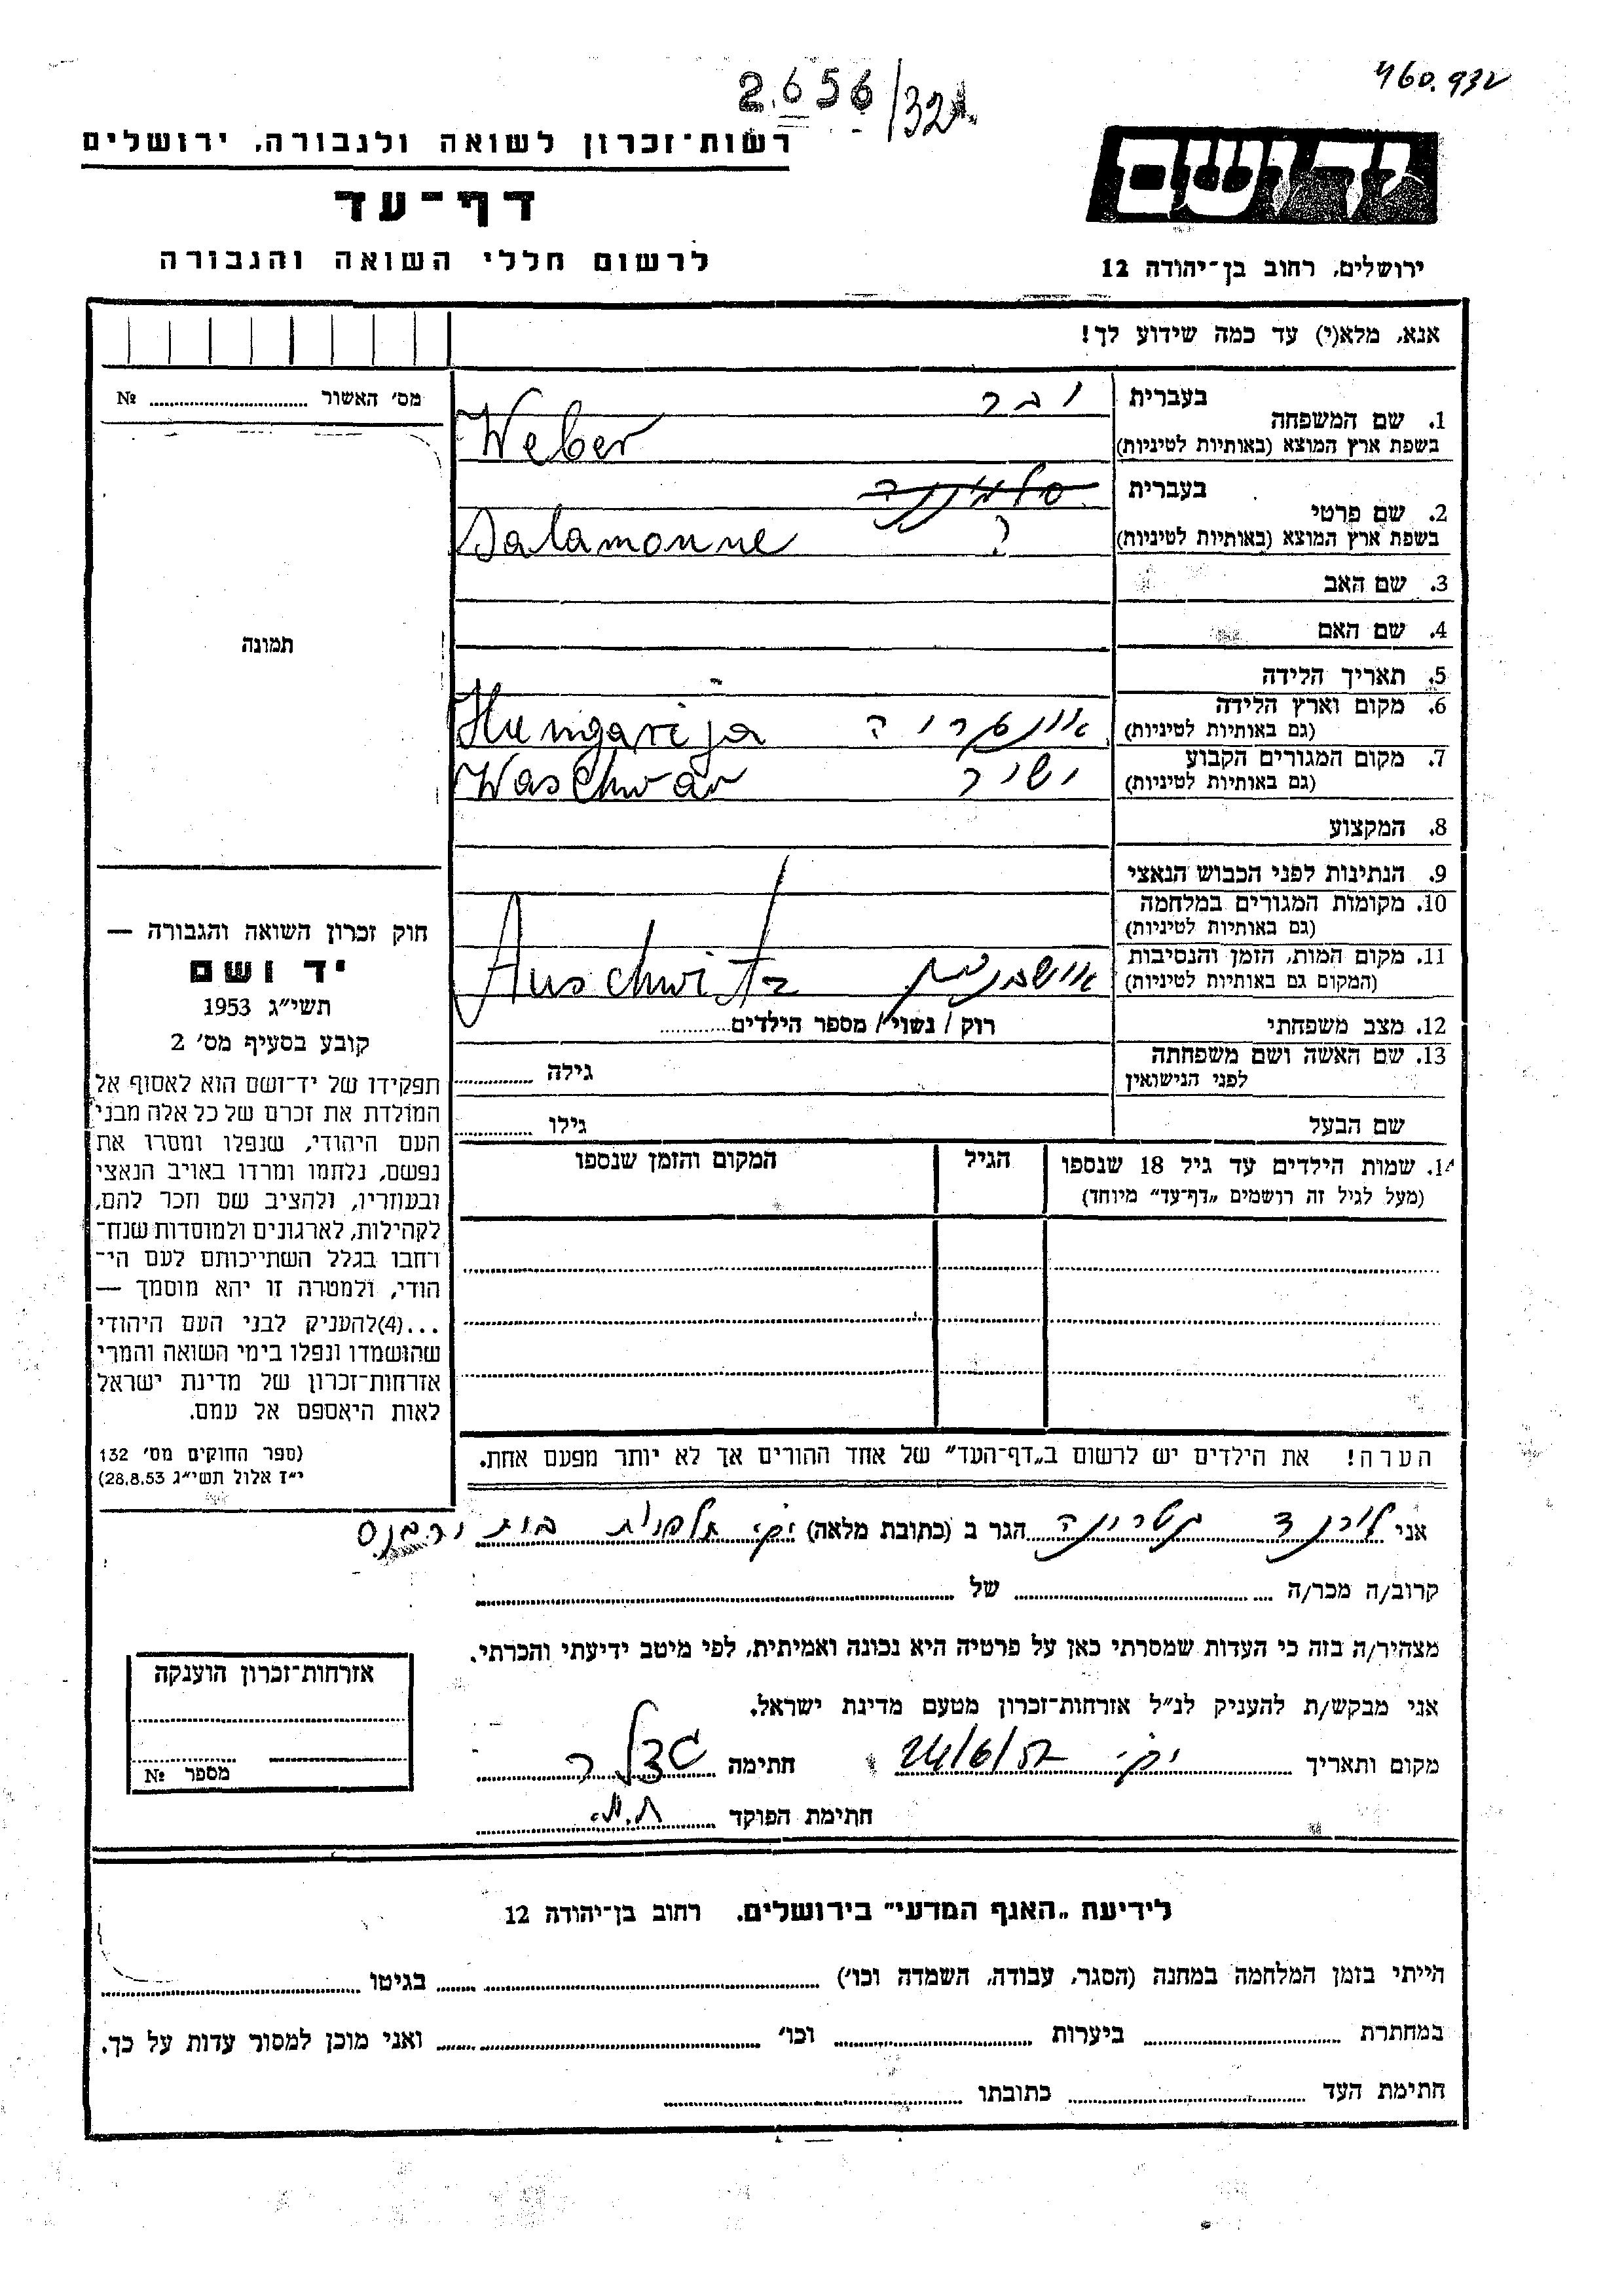 460.932
2656/32
רשות־זכרון לשואה ולגבורה, ירושלים
יד ושם
דף־עד
לרשום חללי השואה והגבורה
ירושלים, רחוב בן־יהודה 12
אנא, מלא(י) עד כמה שידוע לך!
מס׳ האשור № 
1. שם המשפחה
בעברית ובר
בשפת ארץ המוצא (באותיות לטיניות) Weber
2. שם פרטי
בעברית
בשפת ארץ המוצא (באותיות לטיניות) ? Salamonne
3. שם האב
4. שם האם
5. תאריך הלידה
6. מקום וארץ הלידה
(גם באותיות לטיניות) אונגריה Hungarija
7. מקום המגורים הקבוע
(גם באותיות לטיניות) Waschwar
8. המקצוע
9. הנתינות לפני הכבוש הנאצי
10. מקומות המגורים במלחמה
(גם באותיות לטיניות)
11. מקום המות, הזמן והנסיבות
(המקום גם באותיות לטיניות) אושביץ Auschwitz
12. מצב משפחתי רוק / נשוי / מספר הילדים
13. שם האשה ושם משפחתה
לפני הנישואין גילה
שם הבעל גילו
14. שמות הילדים עד גיל 18 שנספו
(מעל לגיל זה רושמים „דף־עד״ מיוחד)
הגיל
המקום והזמן שנספו
הערה! את הילדים יש לרשום ב„דף־העד״ של אחד ההורים אך לא יותר מפעם אחת.
תמונה
חוק זכרון השואה והגבורה —
יד ושם
תשי״ג 1953
קובע בסעיף מס׳ 2
תפקידו של יד־ושם הוא לאסוף אל
המולדת את זכרם של כל אלה מבני
העם היהודי, שנפלו ומסרו את
נפשם, נלחמו ומרדו באויב הנאצי
ובעוזריו, ולהציב שם וזכר להם,
לקהילות, לארגונים ולמוסדות שנח־
רחבו בגלל השתייכותם לעם הי־
הודי, ולמטרה זו יהא מוסמך —
...(4) להעניק לבני העם היהודי
שהושמדו ונפלו בימי השואה והמרי
אזרחות־זכרון של מדינת ישראל
לאות היאספם אל עמם.
(ספר החוקים מס׳ 132
י״ז אלול תשי״ג 28.8.53)
אני הגר ב (כתובת מלאה)
קרוב/ה מכר/ה של
מצהיר/ה בזה כי העדות שמסרתי כאן על פרטיה היא נכונה ואמיתית, לפי מיטב ידיעתי והכרתי.
אני מבקש/ת להעניק לנ״ל אזרחות־זכרון מטעם מדינת ישראל.
מקום ותאריך 24/6/57 חתימה
חתימת הפוקד
אזרחות־זכרון הוענקה
מספר №
לידיעת „האגף המדעי״ בירושלים. רחוב בן־יהודה 12
הייתי בזמן המלחמה במחנה (הסגר, עבודה, השמדה וכו׳) בגיטו
במחתרת ביערות וכו׳ ואני מוכן למסור עדות על כך.
חתימת העד כתובתו